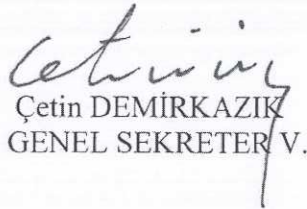 Çetin DEMİRKAZIK
GENEL SEKRETER V.